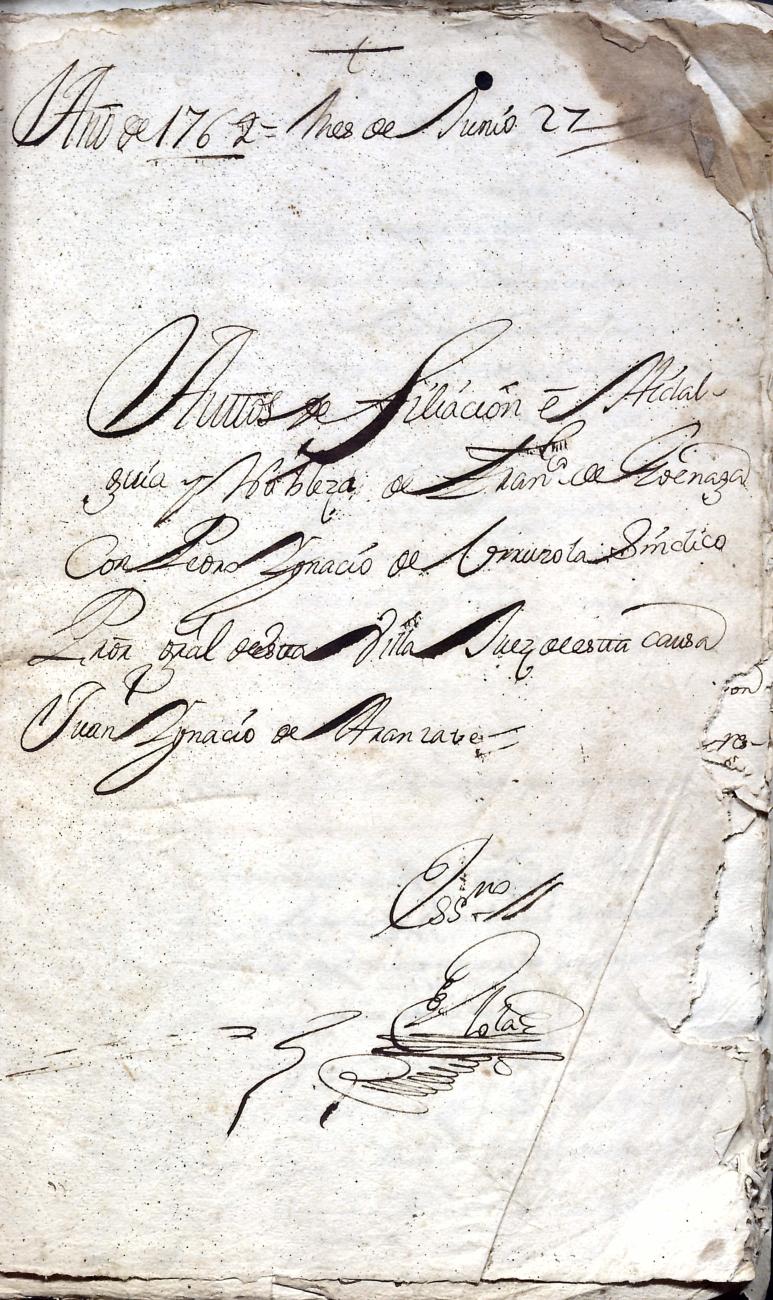 Año de 1762 = Mes de Junio 27
Autos de Filiación é Hidal-
guia y Nobleza de Fran.co de Goenaga
Con Pedro Ygnacio de Urruzola Sindico
Pror gral de esta Villa Juez de esta causa
Juan Ygnacio de Aranzate =
Essno